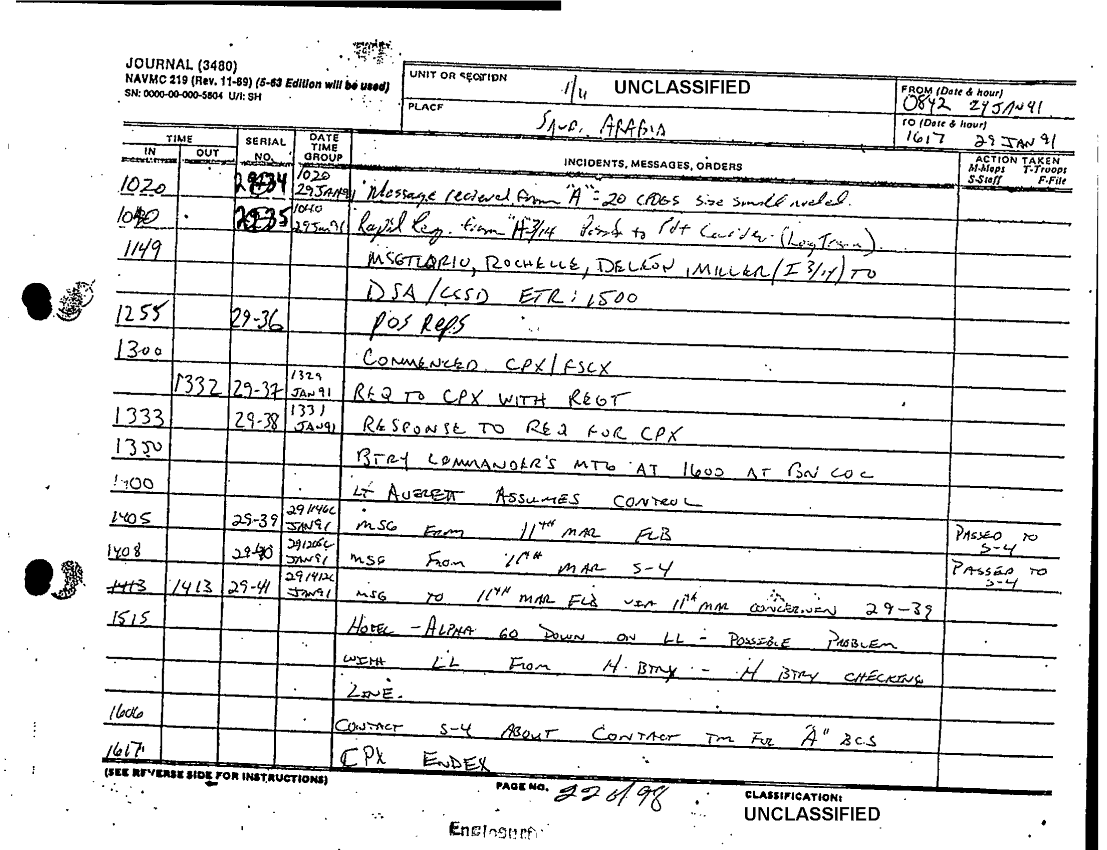 JOURNAL (3480)
NAVMC 219 (Rev. 11-69) (5-63 Edition will be used)
SN: 0000-00-000-5804 U/I: SH
UNIT OR SECTION 1/11 UNCLASSIFIED
PLACE SAUDI ARABIA
FROM (Date & hour)
0842 29 JAN 91
TO (Date & hour)
1617 29 JAN 91
TIME
IN OUT
SERIAL NO.
DATE TIME GROUP
INCIDENTS, MESSAGES, ORDERS
ACTION TAKEN
M-Maps T-Troops
S-Staff F-File
1020 29-34 1020 29JAN91 Message recieved from "A" - 20 size small needed.
1040 29-35 1040 29JAN91 Rapid Req. from to Plt
1149 ROCHELLE, DELEON, MILLER (I 3/14) TO
DSA / CSSD ETR: 1500
1255 29-36 POS REPS
1300 COMMENCED CPX/FSCX
1332 29-37 1329 JAN91 REQ TO CPX WITH REGT
1333 29-38 1331 JAN91 RESPONSE TO REQ FOR CPX
1350 BTRY COMMANDER'S MTG AT 1600 AT BN COC
1400 LT AVERETT ASSUMES CONTROL
1405 29-39 291146C JAN91 MSG FROM 11TH MAR FLB PASSED TO S-4
1408 29-40 291205C JAN91 MSG FROM 11TH MAR S-4 PASSED TO S-4
1413 1413 29-41 291412C JAN91 MSG TO 11TH MAR FLB VIA 11TH MAR 29-39
1515 HOTEL - ALPHA GO DOWN ON LL - POSSIBLE PROBLEM
WITH LL FROM H. BTRY - H BTRY CHECKING
LINE.
1606 CONTACT S-4 ABOUT CONTACT TM FOR "A" BCS
1617 CPX ENDEX
(SEE REVERSE SIDE FOR INSTRUCTIONS)
PAGE NO. 22 of 98
CLASSIFICATION:
UNCLASSIFIED